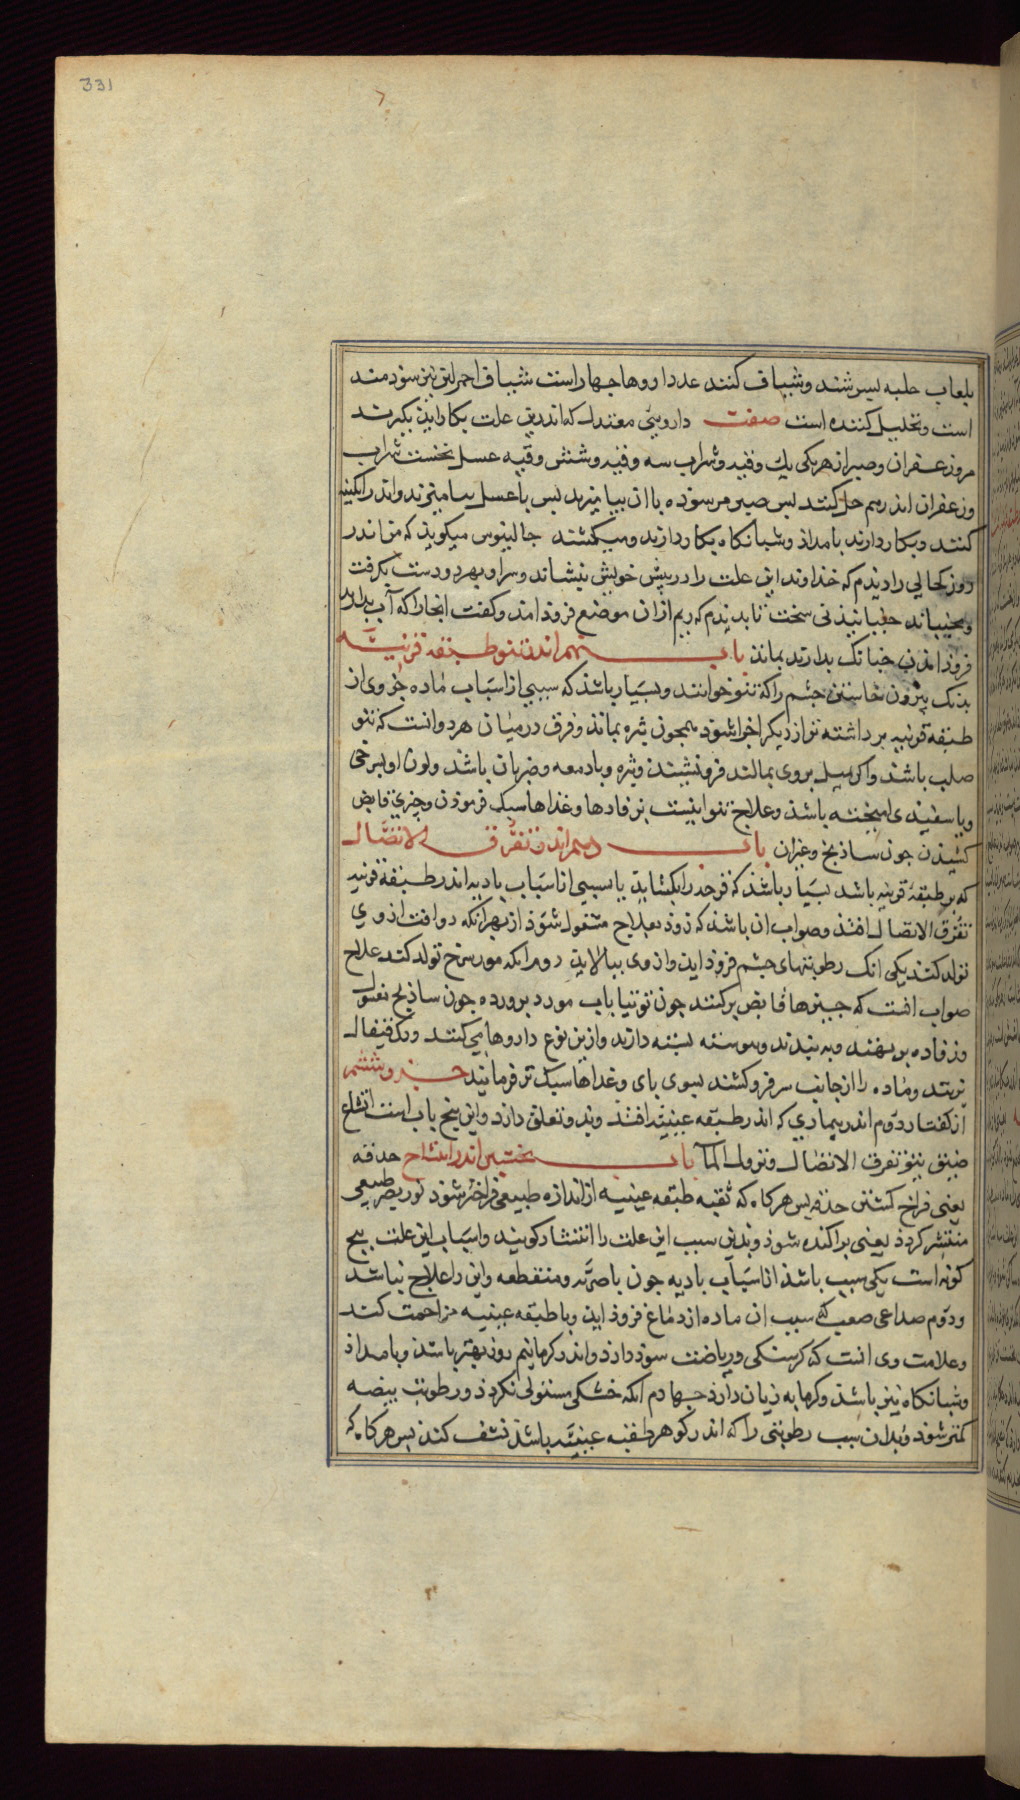 331
بلعاب حلبه بسرشند وشیاف کنند عدد داروها چهار است شیاف احمر لین نیز سودمند
است وتحلیل کننده است صفت داروییی معتدل که اندرین علت بکار اید بکیرند
مر وزعفران وصبر از هر یکی یك وقیه وشراب سه وقیه وشش وقیه عسل نخست شراب
وزعفران اندر هم حل کنند بس صبر مر سوده با ان بیامیزند بس با عسل بیامیزند واندر ابکینه
کنند وبکار دارند بامداد وشبانکاه بکار دارند ومیکشند جالینوس میکوید که من اندر
روزکحالی را دیدم که خداوند این علت را در پیش خویش بنشاند وسر او بهر دو دست بکرفت
وبجنبانید جنبانیدنی سخت تا بدیدم که ریم از ان موضع فرود امد وکفت اینجا را که آب بدارند
فروذ اندن جنانک بدارند بماند باب نهم اندر نتو طبقه قرنیه
بدنک بیرون خاستن جشم را که نتو خوانند وبسیار باشد که سببی از اسباب ماده جزوی از
طبقه قرنیه برداشته تر از دیکر اجزا شود همجون بثره بماند وفرق درمیان هر دو انست که نتو
صلب باشد واکر میل بر وی بمالند فرو نشیند وبثره وبا دمعه وضربان باشد ولون او بسرخی
ویا سفیدی امیخته باشد وعلاج نتو اینست بر فادها وغذاها سبک فرمودن وجیزی قابض
کشیدن جون ساذنج وغیران باب دهم اندر تفرق الاتصال
که بر طبقه قرنیه باشد بسیار باشد که قرحه را بکشاید یا سببی از اسباب بادیه اندر طبقه قرنیه
تفرق الاتصال افتد وصواب ان باشد که زود بعلاج مشغول شود از بهر انکه دو افت از وی
تولد کنند یکی انک رطوبتهای جشم فرود اید واز وی بیالاید دوم انکه مورسرخ تولد کند علاج
صواب انست که جیزها قابض بر کنند جون توتیا باب مورد پرورده جون ساذنج مغسول
ورفاده بر نهند وببندند وپیوسته بسته دارند وازین نوع داروها می کنند ورک قیفال
بزنند وماده را از جانب سر فرو کشند بسوی پای وغذاها سبک تر فرمایند جزو ششم
از کفتار دوم اندر بیماری که اندر طبقه عنبیه افتد وبدو تعلق دارد واین پنج باب است اتساع
ضیق نتو تفرق الاتصال ونزول المآ باب نخستین اندر اتساع حدقه
یعنی فراخ کشتن حدقه بس هرکاه که ثقبه طبقه عنبیه از اندازه طبیعی فراختر شود نور بصر طبیعی
منتشر کردد یعنی براکنده شود وبدین سبب این علت را انتشار کویند واسباب این علت پنج
کونه است یکی سبب باشد از اسباب بادیه جون با ضربه ومنقطعه واین را علاج نباشد
ودوم صداعی صعب که سبب ان ماده از دماغ فرود اید وبا طبقه عنبیه مزاحمت کند
وعلامت وی انست که کرسنکی وریاضت سود دارد واندر کرما نیم روز بهتر باشد وبامداد
وشبانکاه نیز باشد وکرمابه زیان دارد جهارم انکه خشکی مستولی کردد ورطوبت بیضه
کمتر شود وبدان سبب رطوبتی را که اندر کوهر طبقه عنبیه باشد نشف کند بس هرکاه که